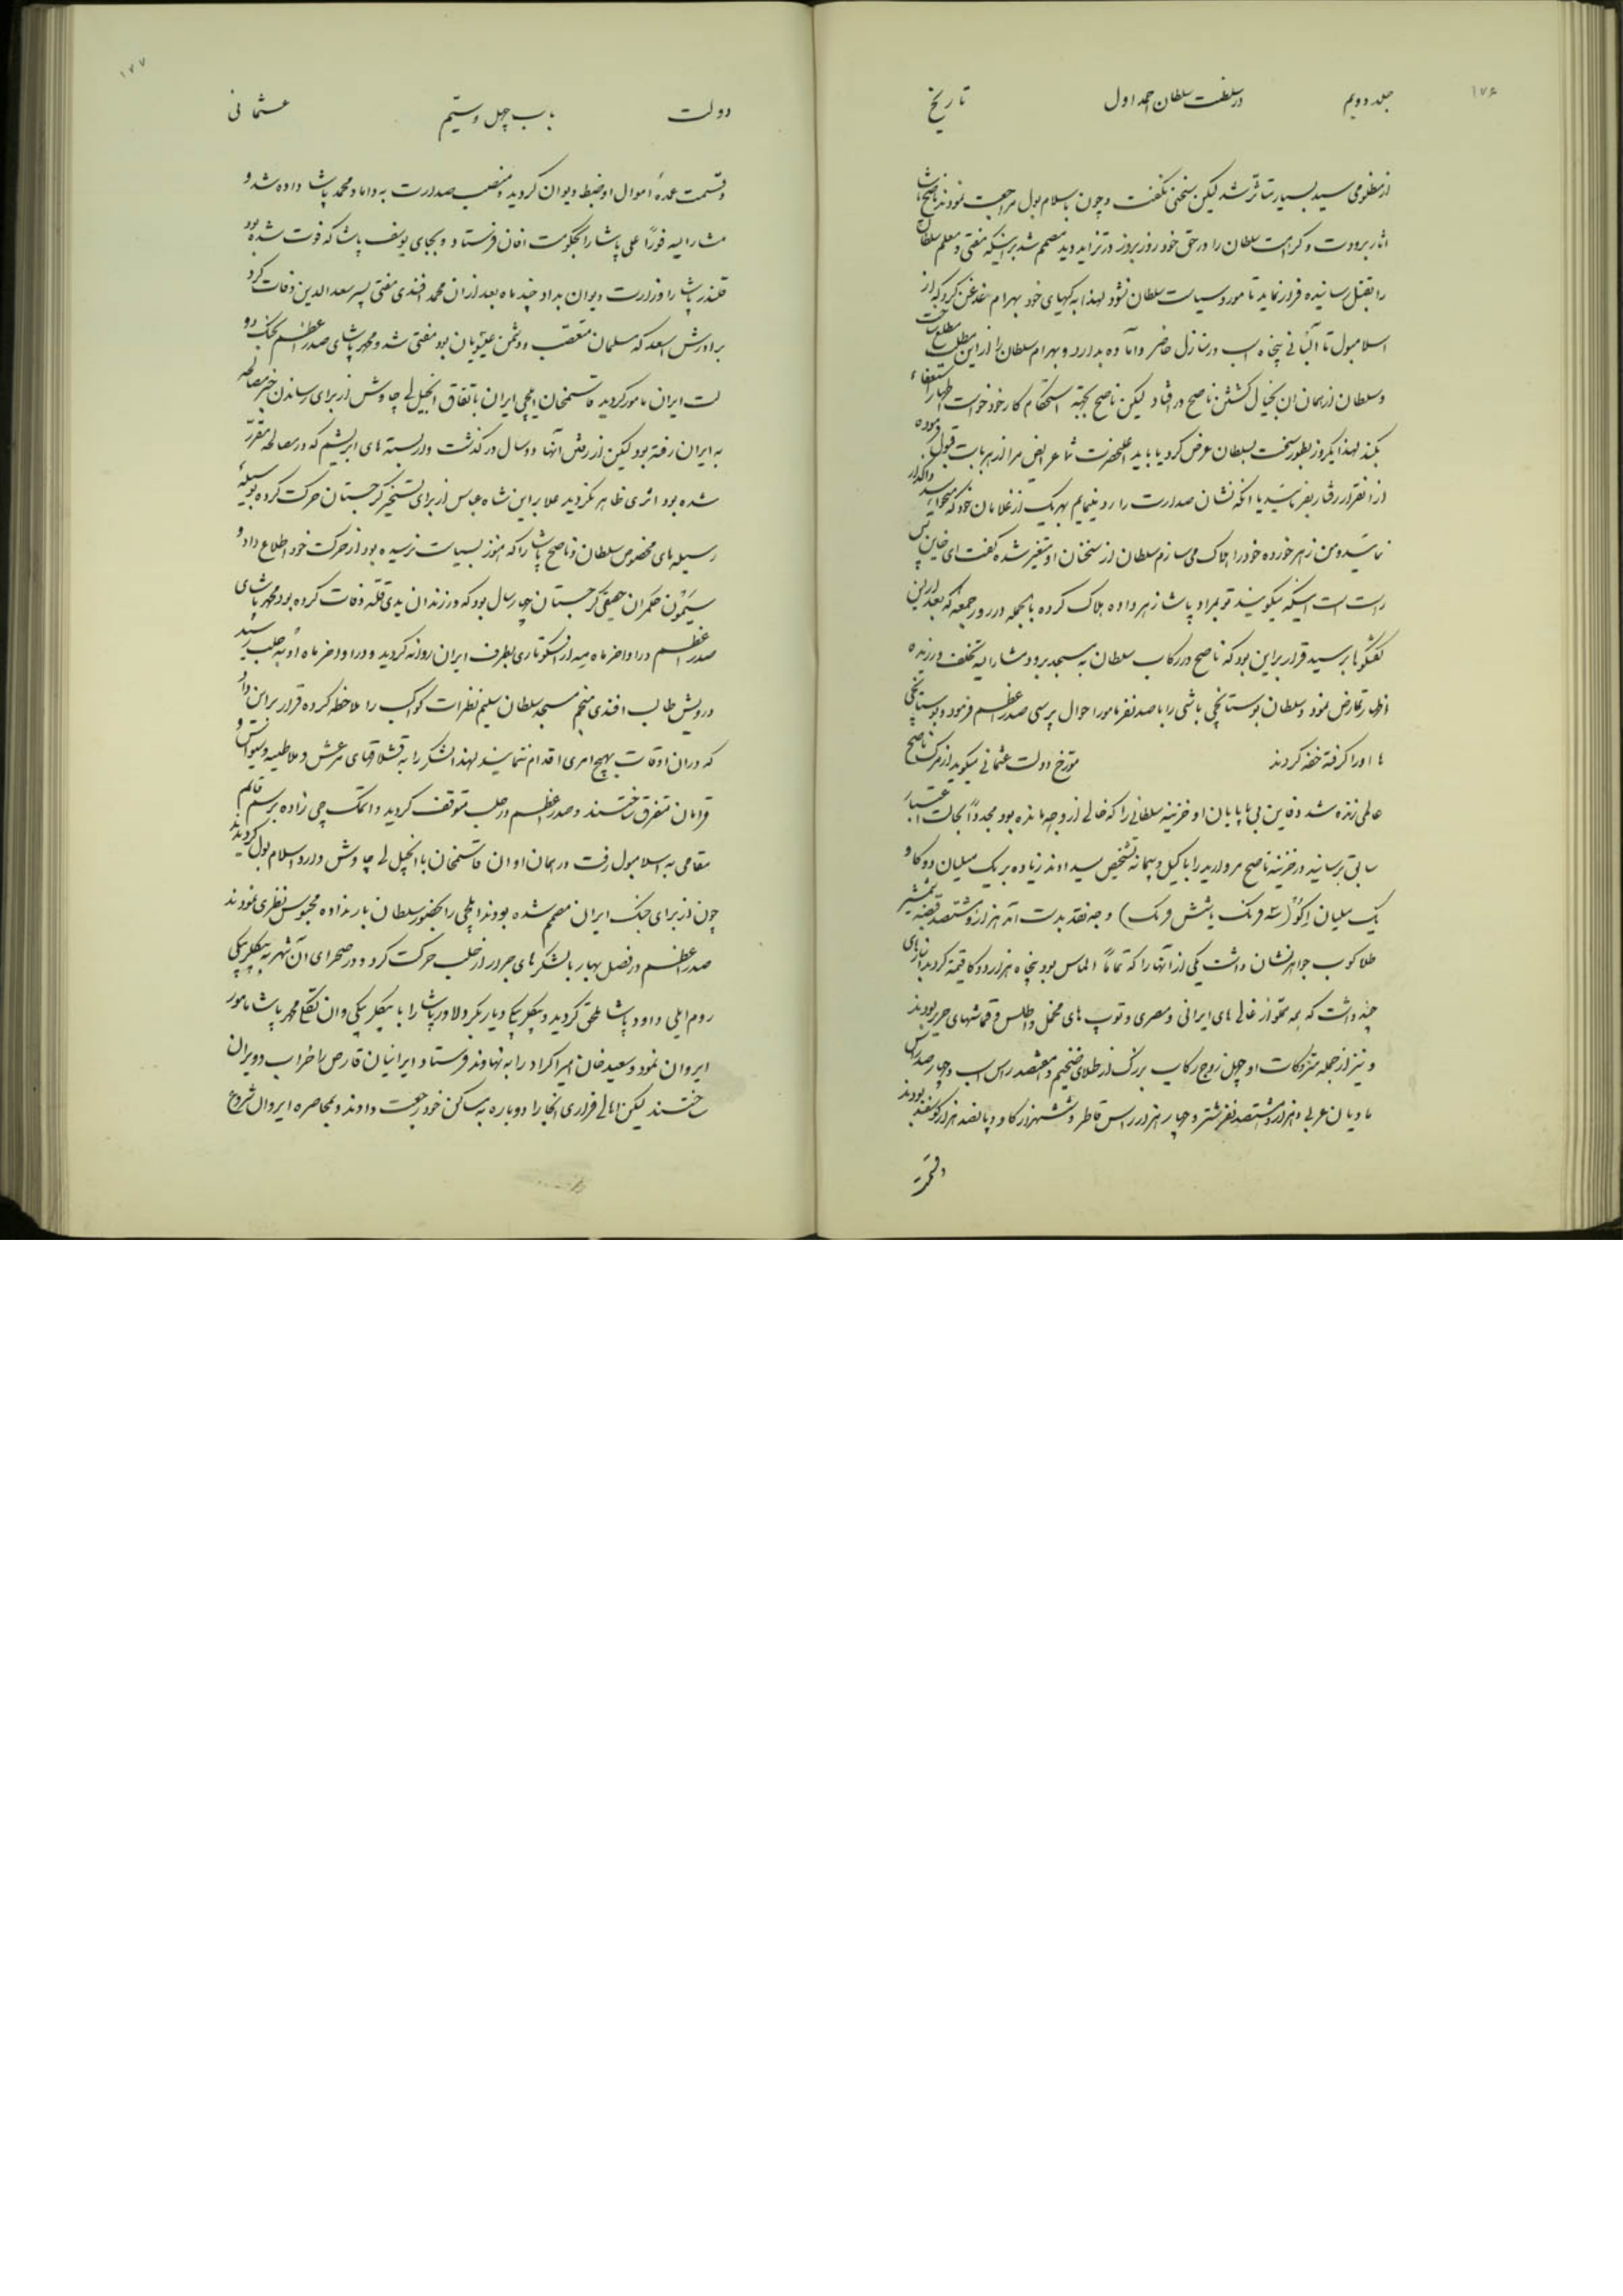 ۱۷۶
جلد دویم در سلطنت سلطان احمد اول تاریخ
از مظلومی سید بسیار متأثر شد لیکن سخنی نگفت و چون باسلامبول مراجعت نمودند ناصح پاشا
اثار برودت و کراهت سلطان را در حق خود روز بروز در تزاید دید مصمم شد بر اینکه مفتی و معلم سلطان
را بقتل رسانیده فرار نماید تا مورد سیاست سلطان نشود لهذا به کهیای خود بهرام غدغن کرد که از
اسلامبول تا آلبانی پنجاه اسب در منازل حاضر و آماده بدارد و بهرام سلطان را از این مطلب مطلع ساخت
و سلطان از همان ان بخیال کشتن ناصح در افتاد لیکن ناصح بجهة استحکام کار خود خواست اظهار استعفاء
بکند لهذا یکروز بطور سخت بسلطان عرض کرد یا باید اعلیحضرت شما عرایض مرا از هر بابت قبول فرموده
از انقرار رفتار بفرمائید یا انکه نشان صدارت را رد مینمایم بهر یک از غلامان خود که میخواهید واگذار
نمائید و من زهر خورده خود را هلاک می سازم سلطان از سخنان او متغیر شده گفت ای خاین پس
راست است اینکه میگویند تو بمراد پاشا زهر داده هلاک کرده بالجمله در روز جمعه که بعد از این
گفتگوها برسید قرار بر این بود که ناصح در رکاب سلطان به مسجد برود مشار الیه تخلف ورزیده
اظهار تمارض نمود و سلطان بوستانچی باشی را با صد نفر مامور احوال پرسی صدر اعظم فرمود و بوستانچی
ها او را گرفته خفه کردند مورخ دولت عثمانی میگوید از مرگ ناصح
عالمی زنده شد دفاین بی پایان او خزینه سلطانی را که خالی از وجه مانده بود مجدداً بحالت اعتبار
سابق برسانید در خزینه ناصح مروارید را با کیل و پیمانه تشخیص میدادند زیاده بر یک میلیان دوکا و
یک میلیان اکو (سه فرنگ یا شش فرنگ) وجه نقد بدست آمد هزار و هشتصد قبضه شمشیر
طلا کوب جواهر نشان داشت یکی از آنها را که تماماً الماس بود پنجاه هزار دوکا قیمة کردند انبارهای
چند داشت که همه مملو از غالی های ایرانی و مصری و توپ های مخمل و اطلس و قماشهای حریر بودند
و نیز از جمله متروکات او چهل زوج رکاب بزرگ از طلای ضخیم و هفتصد راس اسب و چهار صد راس
مادیان عربی و هزار و هشتصد نفر شتر و چهار هزار راس قاطر و ششهزار گاو و پانصد هزار گوسفند بودند
وقسمت
۱۷۷
دولت باب چهل و سیّم عثمانی
و قسمت عمدهٔ اموال او ضبط دیوان گردید و منصب صدارت به داماد محمد پاشا داده شد و
مشار الیه فوراً علی پاشا را بحکومت افان فرستاد و بجای یوسف پاشا که فوت شده بود
قلندر پاشا را وزارت دیوان بداد چند ماه بعد از ان محمد افندی مفتی پسر سعد الدین وفات کرد
برادرش اسعد که مسلمان متعصب و دشمن عیسویان بود مفتی شد و محمد پاشای صدر اعظم بجنگ دو
لت ایران مامور گردید قاسمخان ایلچی ایران باتفاق انجیل لی چاوش از برای رساندن خبر مصالحه
به ایران رفته بود لیکن از رفتن آنها دو سال در گذشت و از بسته های ابریشم که در مصالحه مقرر
شده بود اثری ظاهر نگردید علاوه براین شاه عباس از برای تسخیر گرجستان حرکت کرده بوسیله
رسیله های مخصوص سلطان و ناصح پاشا را که هنوز بسیاست نرسیده بود از حرکت خود اطلاع داد و
سیمون حکمران حقیقی گرجستان چهار سال بود که در زندان یدی قله وفات کرده بود محمد پاشای
صدر اعظم در اواخر ماه میه از اسکوتاری بطرف ایران روانه گردید و در اواخر ماه اوُت به حلب رسید
درویش طالب افندی منجم مسجد سلطان سلیم نظرات کواکب را ملاحظه کرده قرار بر این داد
که در ان اوقات بهیچ امری اقدام ننمایند لهذا لشکر را به قشلاقهای مرعش و ملاطیه و سیواس و
قرامان متفرق ساختند و صدر اعظم در حلب متوقف گردید و اتمک چی زاده برسم قائم
مقامی به اسلامبول رفت در همان اوان قاسمخان با انجیل لی چاوش وارد اسلامبول گردیدند
چون از برای جنگ ایران مصمم شده بودند ایلچی را بحضور سلطان بار نداده محبوس نظری نمودند
صدر اعظم در فصل بهار با لشکرهای جرار از حلب حرکت کرد و در صحرای آن شهر به بیگلربیگی
روم ایلی داود پاشا ملحق گردید و بیگلربیگی دیاربکر دلاور پاشا را با بیگلربیگی وان تکلی محمد پاشا مامور
ایروان نمود و سعید خان امیر اکراد را به نهاوند فرستاد ایرانیان قارص را خراب و ویران
ساختند لیکن اهالی فراری انجا را دوباره به مساکن خود رجعت دادند و بمحاصره ایروان شروع